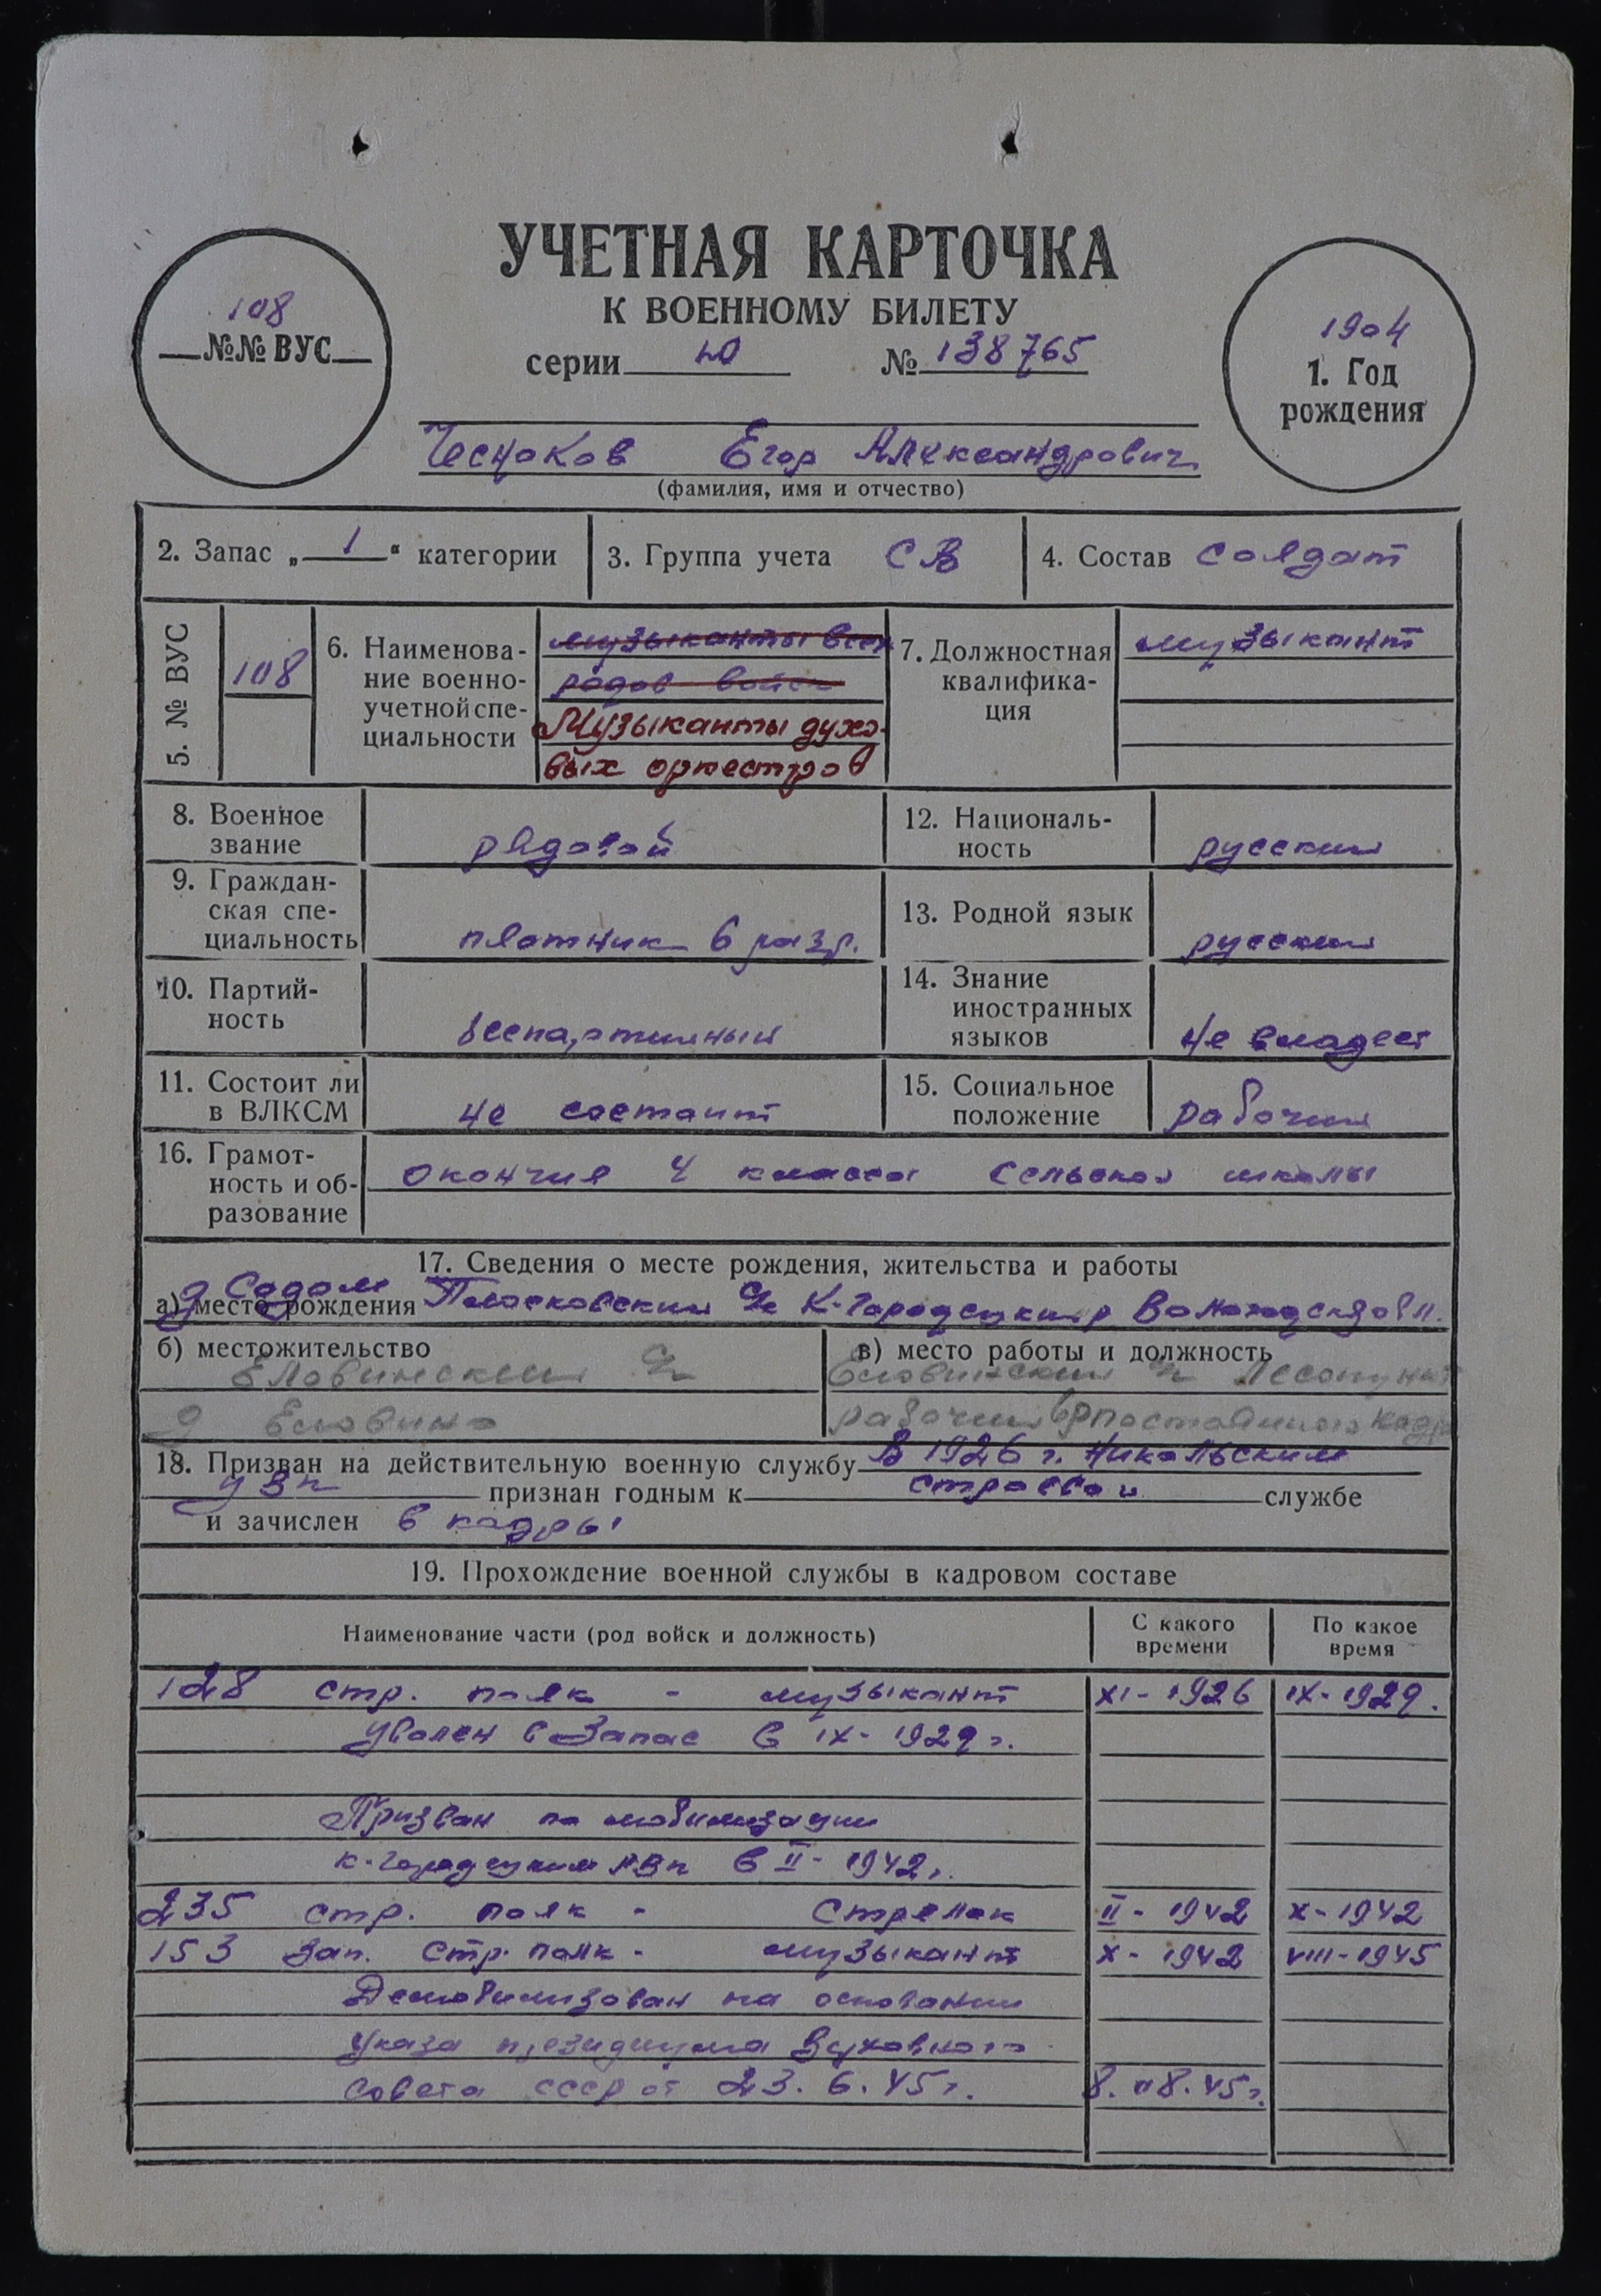 УЧЕТНАЯ КАРТОЧКА
К ВОЕННОМУ БИЛЕТУ
серии Ю № 138765
108
№№ ВУС
1904
1. Год
рождения
Чесноков Егор Александрович
(фамилия, имя и отчество)
2. Запас „ 1 “ категории
3. Группа учета СВ
4. Состав солдат
5. № ВУС
108
6. Наименова-
ние военно-
учетной спе-
циальности
музыканты всех
родов войск
Музыканты духо-
вых оркестров
7. Должностная
квалифика-
ция
музыкант
8. Военное
звание
рядовой
12. Националь-
ность
русский
9. Граждан-
ская спе-
циальность
плотник 6 разр.
13. Родной язык
русский
10. Партий-
ность
беспартийный
14. Знание
иностранных
языков
не владеет
11. Состоит ли
в ВЛКСМ
не состоит
15. Социальное
положение
рабочий
16. Грамот-
ность и об-
разование
окончил 4 класса сельской школы
17. Сведения о месте рождения, жительства и работы
д Содом
а) место рождения с/с К-Городецкий р Вологодской обл.
б) местожительство
Еловинский с/с
д Еловино
в) место работы и должность
Еловинский Лесопункт
рабочий постоянного кадра
18. Призван на действительную военную службу В 1926 г. Никольским
УВК признан годным к строевой службе
и зачислен в кадры
19. Прохождение военной службы в кадровом составе
Наименование части (род войск и должность)
С какого
времени
По какое
время
128 стр. полк - музыкант XI-1926 IX-1929.
Уволен в Запас в IX-1929 г.
Призван по мобилизации
К-Городецким РВК в II-1942 г.
235 стр. полк - Стрелок II-1942 X-1942
153 Зап. стр. полк - музыкант X-1942 VIII-1945
Демобилизован на основании
Указа президиума Верховного
Совета СССР от 23.6.45 г. 8.08.45 г.